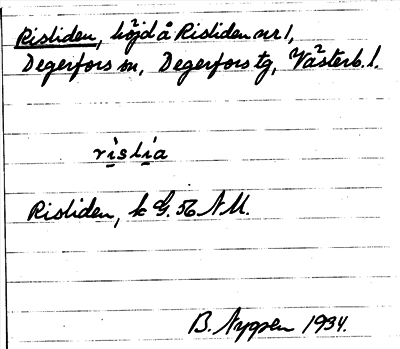 Risliden, höjd å Risliden nr 1,
Degerfors sn, Degerfors tg, Västerb. l.
rislia
Risliden, k G. 56 NU.
B. Nygren 1934.